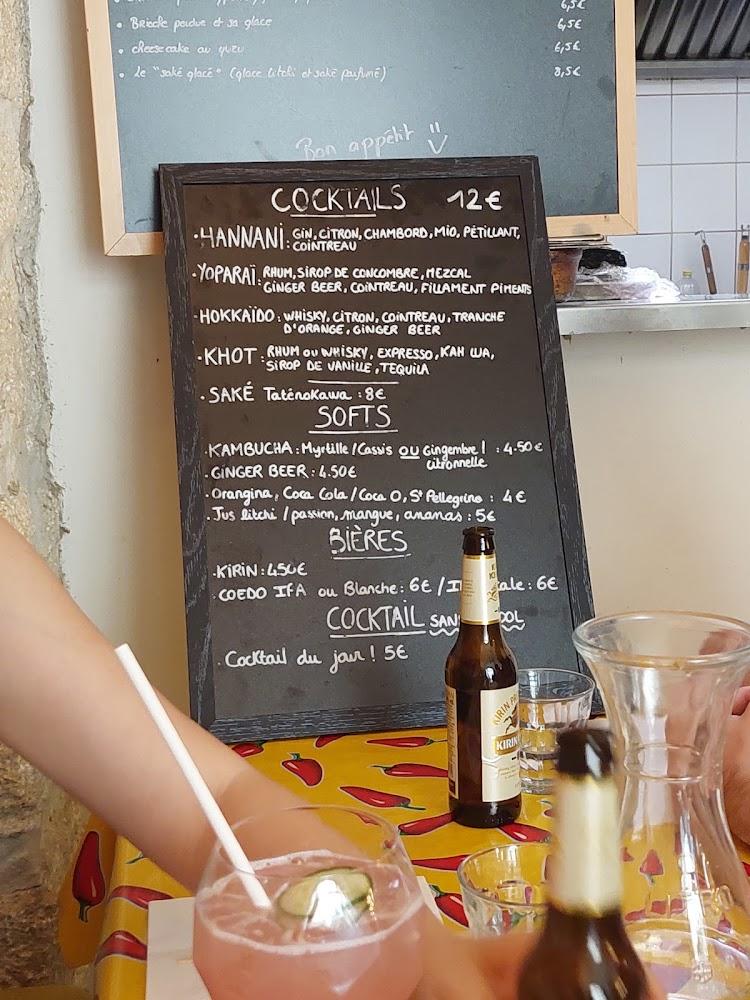 6,5€
• Brioche perdue et sa glace 6,5€
• cheesecake au yuzu 6,5€
• Le "saké glacé" (glace litchi et saké parfumé) 8,5€
Bon appétit !!
COCKTAILS 12€
• HANNANI : GIN, CITRON, CHAMBORD, MIO, PÉTILLANT,
COINTREAU
• YOPARAÏ : RHUM, SIROP DE CONCOMBRE, MEZCAL
GINGER BEER, COINTREAU, FILLAMENT PIMENTS
• HOKKAÏDO : WHISKY, CITRON, COINTREAU, TRANCHE
D'ORANGE, GINGER BEER
• KHOT : RHUM OU WHISKY, EXPRESSO, KAH LUA,
SIROP DE VANILLE, TEQUILA
• SAKÉ Taténokawa : 8€
SOFTS
• KAMBUCHA : Myrtille / Cassis OU Gingembre / : 4.50€
citronnelle
• GINGER BEER : 4.50€
• Orangina, Coca Cola / Coca O, St Pellegrino : 4€
• Jus litchi / passion, mangue, ananas : 5€
BIÈRES
• KIRIN : 4.50€
COEDO IPA ou Blanche : 6€ / ale : 6€
COCKTAIL
• Cocktail du jour ! 5€
KIRIN